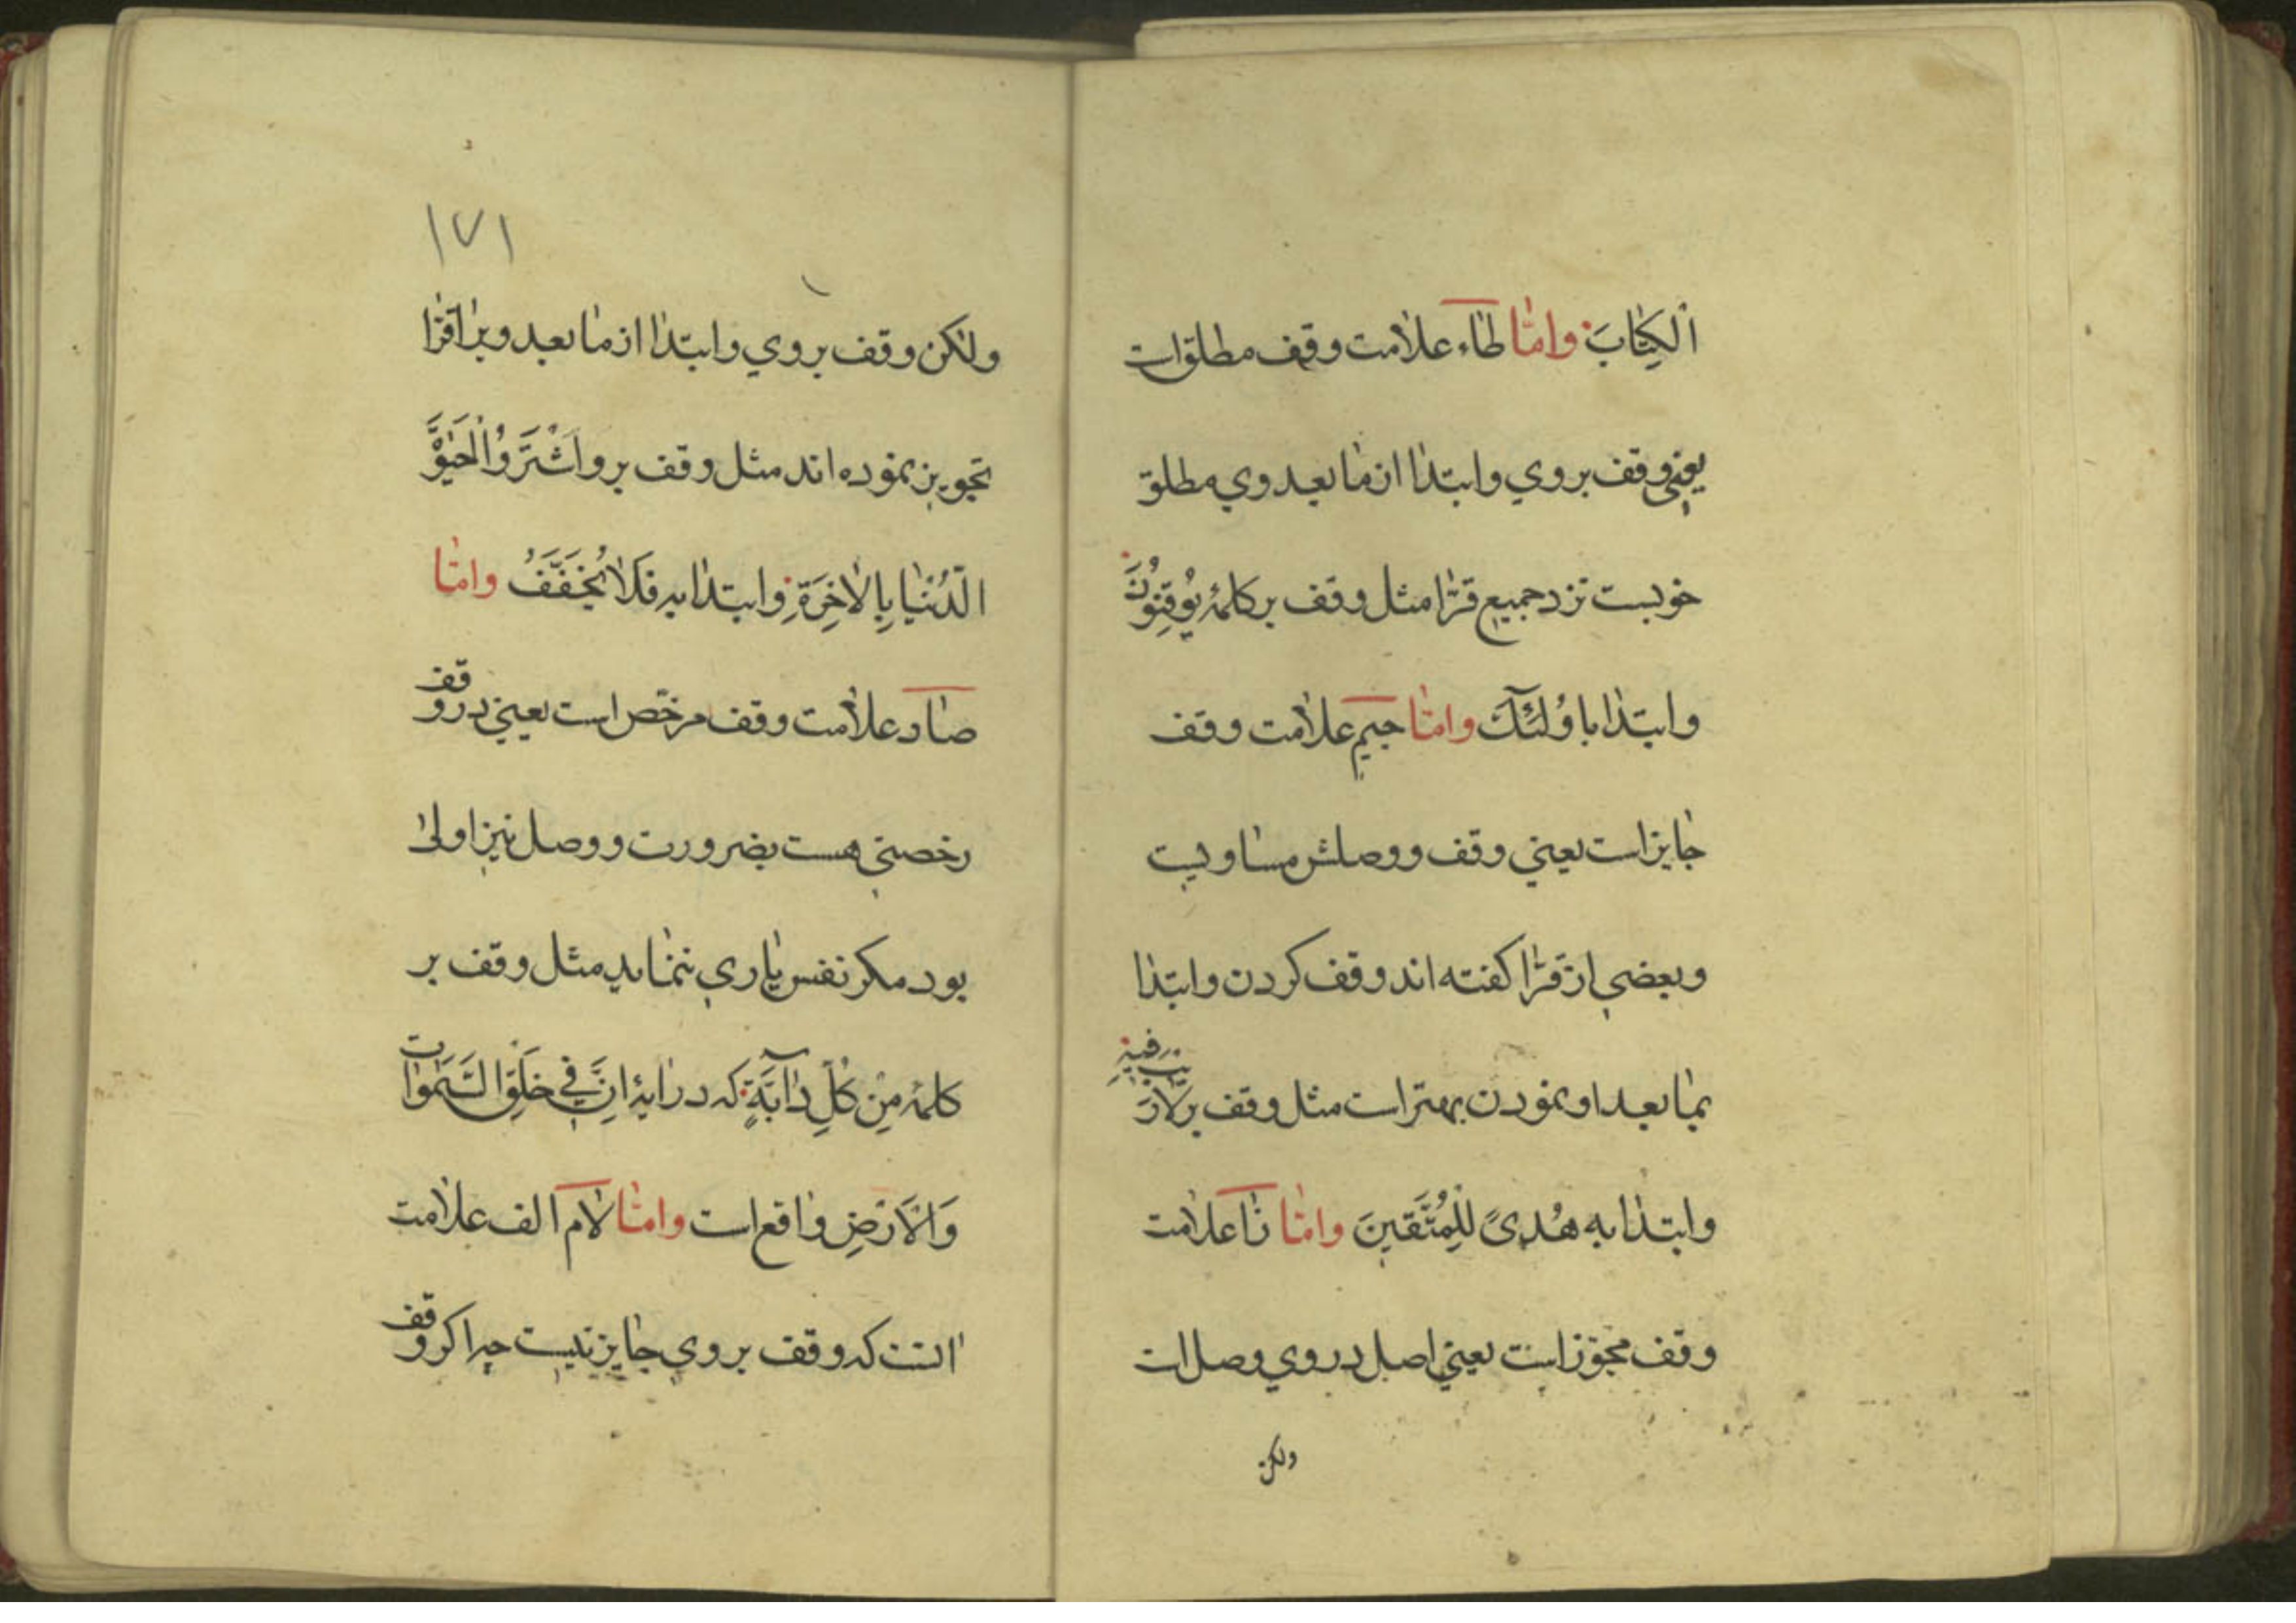 اَلْكِتٰابَ وامّٰا طٰاء علاٰمت وقف مطلق است
يعني وقف بروي وابتدٰا از مٰا بعد وي مطلق
خوبست نزد جميع قرّٰا مثل وقف بر كلمۀ يُوقِنُونَ
وابتدٰا با وُلٰئِكَ وامّٰا جيم علاٰمت وقف
جٰايز است يعني وقف ووصلش مسٰاويست
وبعضي از قرّٰا كفته اند وقف كردن وابتدٰا
بمٰا بعد او نمودن بهتر است مثل وقف بر لاٰرَيْبَ فيهِ
وابتدٰا به هُدىً لِلْمُتَّقينَ وامّٰا زٰا علاٰمت
وقف مجوّز است يعني اصل در وي وصل است
ولكن
١٧١
ولٰكن وقف بروي وابتدٰا از مٰا بعد ويرٰا قرّٰا
تجويز نموده اند مثل وقف بر واَشْتَرَوُا الْحَيٰوةَ
الدُّنْيٰا بِالْاٰخِرَةِ وابتدٰا به فَلاٰ يُخَفَّفُ وامّٰا
صٰاد علاٰمت وقف مرخّص است يعني در وقف
رخصتي هست بضرورت ووصل نيز اولىٰ
بود مكر نفس يٰاري ننمٰايد مثل وقف بر
كلمۀ مِنْ كُلِّ دٰآبَّةٍ كه در اٰيۀ اِنَّ في خَلْقِ السَّمٰوٰات
وَالْاَرْضِ وٰاقع است وامّٰا لاٰم الف علاٰمت
انست كه وقف بروي جٰايز نيست چرا كر وقف